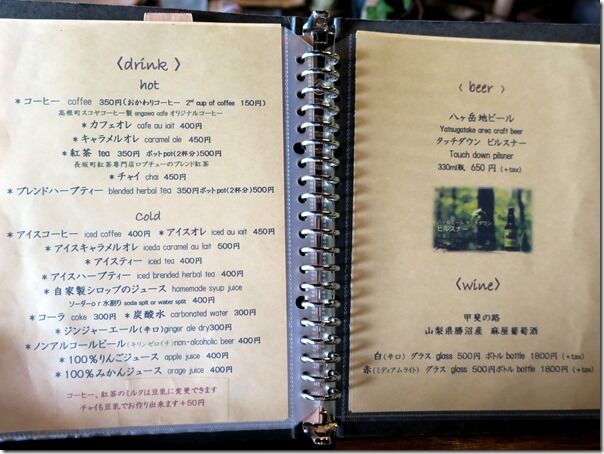 〈drink 〉
hot
＊コーヒー coffee 350円(おかわりコーヒー 2nd cup of coffee 150円)
高根町スコヤコーヒー製 engawa cafe オリジナルコーヒー
＊カフェオレ cafe au lait 400円
＊キャラメルオレ caramel ale 450円
＊紅茶 tea 350円 ポットpot(2杯分)500円
長坂町紅茶専門店ロプチューのブレンド紅茶
＊チャイ chai 450円
＊ブレンドハーブティー blended herbal tea 350円ポットpot(2杯分)500円
Cold
＊アイスコーヒー iced coffee 400円 ＊アイスオレ iced au lait 450円
＊アイスキャラメルオレ iceda caramel au lait 500円
＊アイスティー iced tea 400円
＊アイスハーブティー iced brended herbal tea 400円
＊自家製シロップのジュース homemade syup juice
ソーダーor水割り soda spit or water split 400円
＊コーラ coke 300円 ＊炭酸水 carbonated water 300円
＊ジンジャーエール(辛口)ginger ale dry300円
＊ノンアルコールビール(キリンゼロイチ)non-alcoholic beer 400円
＊100%りんごジュース apple juice 400円
＊100%みかんジュース orage juice 400円
コーヒー、紅茶のミルクは豆乳に変更できます
チャイも豆乳でお作り出来ます+50円
〈 beer 〉
八ヶ岳地ビール
Yatsugatake area craft beer
タッチダウン ピルスナー
Touch down pilsner
330ml瓶 650円 (+tax)
八ヶ岳ビール タッチダウン
ピルスナー
〈wine〉
甲斐の路
山梨県勝沼産 麻屋葡萄酒
白(辛口) グラス glass 500円 ボトル bottle 1800円 (+tax)
赤(ミディアムライト) グラス glass 500円ボトル bottle 1800円 (+tax)